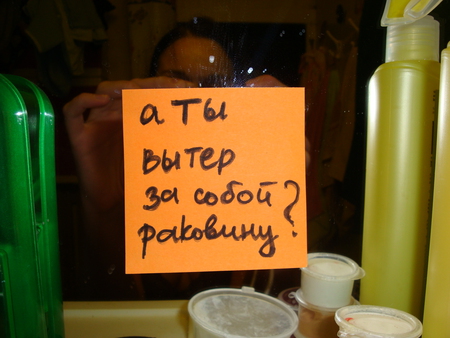 а ты
вытер
за собой
раковину?